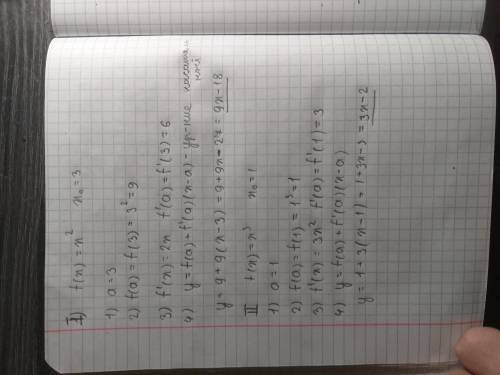 I) f(x) = x² x₀ = 3
1) a = 3
2) f(a) = f(3) = 3² = 9
3) f'(x) = 2x f'(a) = f'(3) = 6
4) y = f(a) + f'(a)(x-a) - ур-ние касательной
y = 9 + 9(x-3) = 9 + 9x - 27 = 9x - 18
II f(x) = x³ x₀ = 1
1) a = 1
2) f(a) = f(1) = 1³ = 1
3) f'(x) = 3x² f'(a) = f'(1) = 3
4) y = f(a) + f'(a)(x-a)
y = 1 + 3(x-1) = 1 + 3x - 3 = 3x - 2